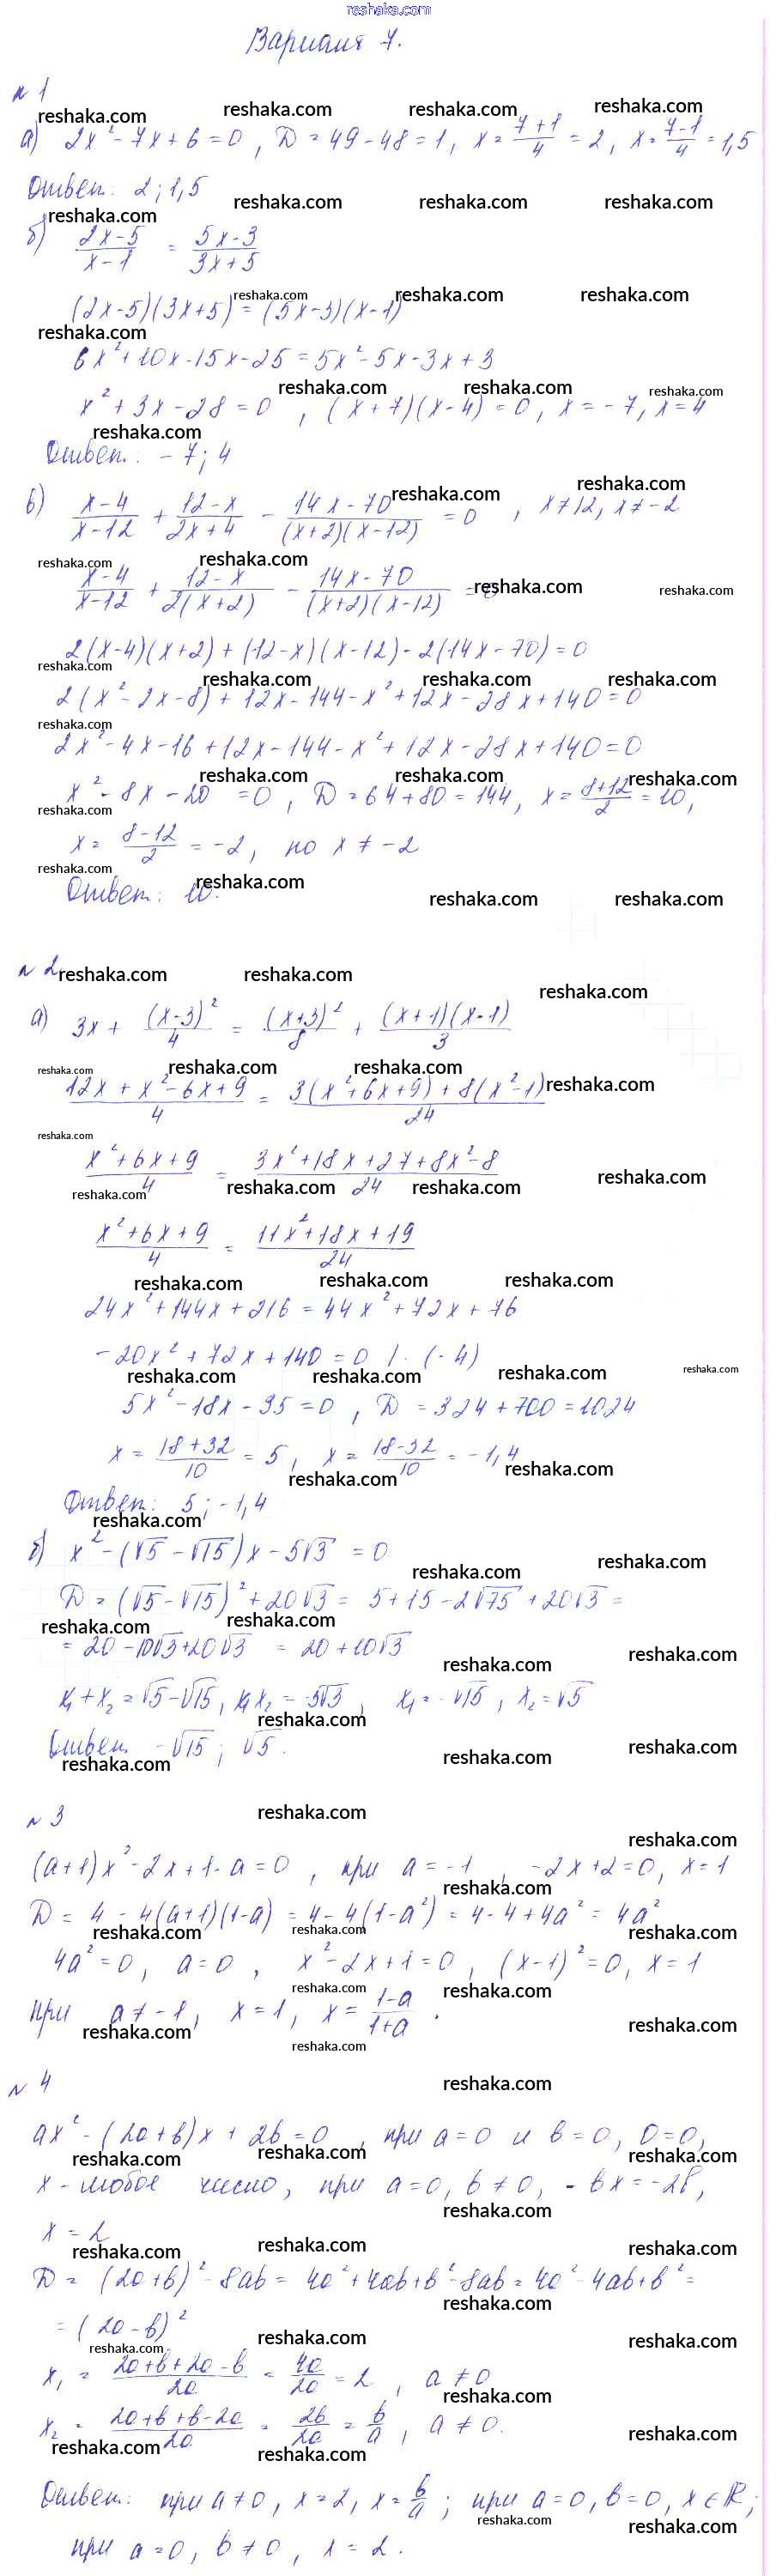 reshaka.com
Вариант 7.
№ 1
а) 2x² - 7x + 6 = 0, D = 49 - 48 = 1, x = (7+1)/4 = 2, x = (7-1)/4 = 1,5
Ответ: 2; 1,5
б) (2x-5)/(x-1) = (5x-3)/(3x+5)
(2x-5)(3x+5) = (5x-3)(x-1)
6x² + 10x - 15x - 25 = 5x² - 5x - 3x + 3
x² + 3x - 28 = 0, (x+7)(x-4) = 0, x = -7, x = 4
Ответ: -7; 4
в) (x-4)/(x-12) + (12-x)/(2x+4) - (14x-70)/((x+2)(x-12)) = 0, x ≠ 12, x ≠ -2
(x-4)/(x-12) + (12-x)/(2(x+2)) - (14x-70)/((x+2)(x-12)) = 0
2(x-4)(x+2) + (12-x)(x-12) - 2(14x-70) = 0
2(x² - 2x - 8) + 12x - 144 - x² + 12x - 28x + 140 = 0
2x² - 4x - 16 + 12x - 144 - x² + 12x - 28x + 140 = 0
x² - 8x - 20 = 0, D = 64 + 80 = 144, x = (8+12)/2 = 10,
x = (8-12)/2 = -2, но x ≠ -2
Ответ: 10.
№ 2
а) 3x + (x-3)²/4 = (x+3)²/8 + (x+1)(x-1)/3
(12x + x² - 6x + 9)/4 = (3(x² + 6x + 9) + 8(x² - 1))/24
(x² + 6x + 9)/4 = (3x² + 18x + 27 + 8x² - 8)/24
(x² + 6x + 9)/4 = (11x² + 18x + 19)/24
24x² + 144x + 216 = 44x² + 72x + 76
-20x² + 72x + 140 = 0 | : (-4)
5x² - 18x - 35 = 0, D = 324 + 700 = 1024
x = (18+32)/10 = 5, x = (18-32)/10 = -1,4
Ответ: 5; -1,4
б) x² - (√5 - √15)x - 5√3 = 0
D = (√5 - √15)² + 20√3 = 5 + 15 - 2√75 + 20√3 =
= 20 - 10√3 + 20√3 = 20 + 10√3
x₁ + x₂ = √5 - √15, x₁x₂ = -5√3, x₁ = -√15, x₂ = √5
Ответ: -√15; √5.
№ 3
(a+1)x² - 2x + 1 - a = 0, при a = -1, -2x + 2 = 0, x = 1
D = 4 - 4(a+1)(1-a) = 4 - 4(1-a²) = 4 - 4 + 4a² = 4a²
4a² = 0, a = 0, x² - 2x + 1 = 0, (x-1)² = 0, x = 1
при a ≠ -1, x = 1, x = (1-a)/(1+a).
№ 4
ax² - (2a+b)x + 2b = 0, при a = 0 и b = 0, 0 = 0,
x - любое число, при a = 0, b ≠ 0, -bx = -2b,
x = 2
D = (2a+b)² - 8ab = 4a² + 4ab + b² - 8ab = 4a² - 4ab + b² =
= (2a-b)²
x₁ = (2a+b+2a-b)/2a = 4a/2a = 2, a ≠ 0
x₂ = (2a+b+b-2a)/2a = 2b/2a = b/a, a ≠ 0.
Ответ: при a ≠ 0, x = 2, x = b/a; при a = 0, b = 0, x ∈ R;
при a = 0, b ≠ 0, x = 2.